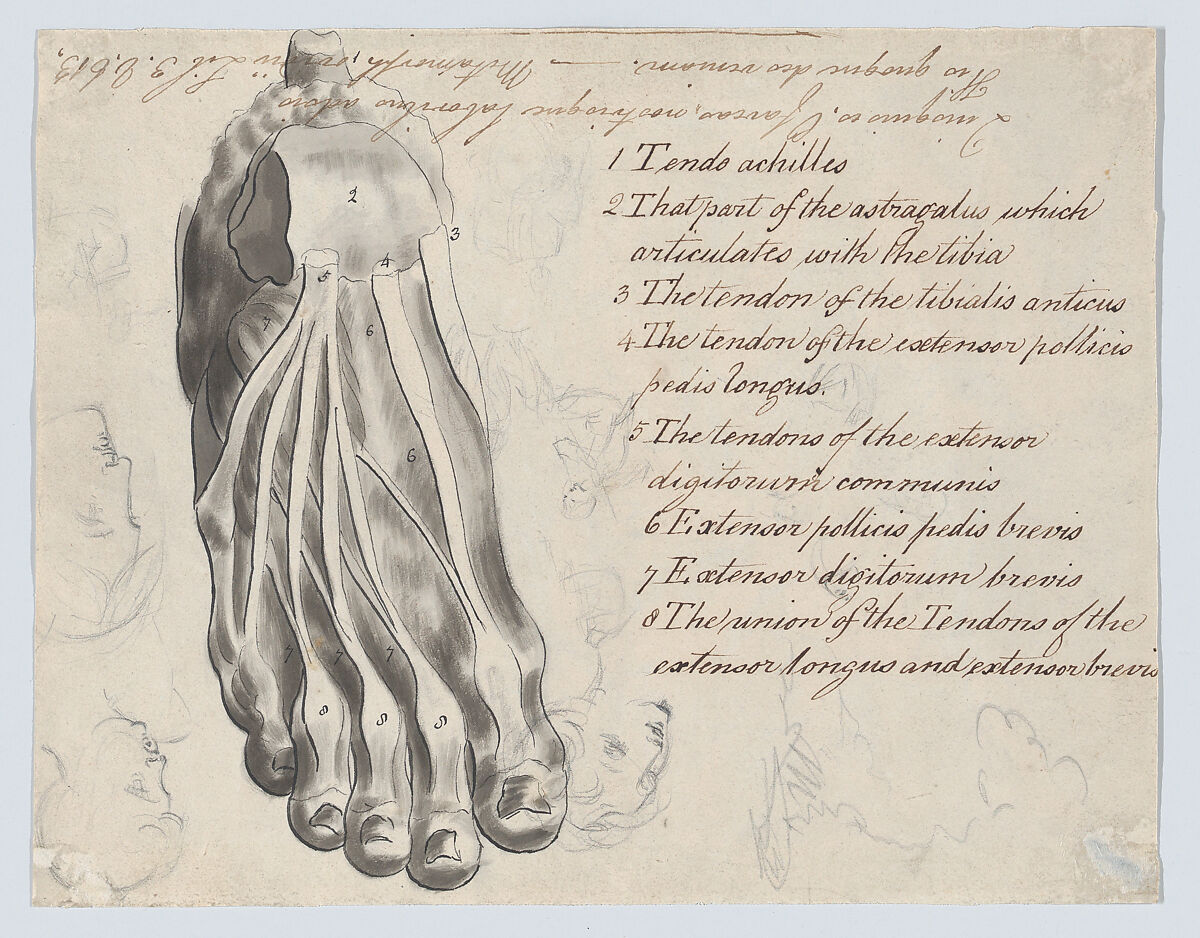 Quisquis es, O faveas, nostrisque laboribus adsis
His quoque des veniam. — Metamorph. Lib 3. l. 613,
1 Tendo achilles
2 That part of the astragalus which
articulates with the tibia
3 The tendon of the tibialis anticus
4 The tendon of the extensor pollicis
pedis longus.
5 The tendons of the extensor
digitorum communis
6 Extensor pollicis pedis brevis
7 Extensor digitorum brevis
8 The union of the Tendons of the
extensor longus and extensor brevis
2
3
4
5
7
6
6
7
7
7
8
8
8